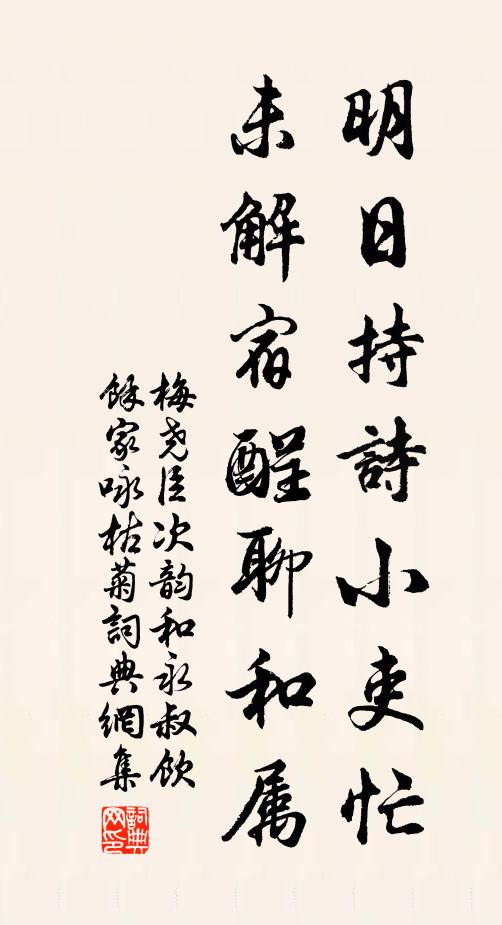 明日持詩小吏忙
未解宿酲聊和属
梅尧臣次韵和永叔饮
馀家咏枯菊詞典網集
詞典網印